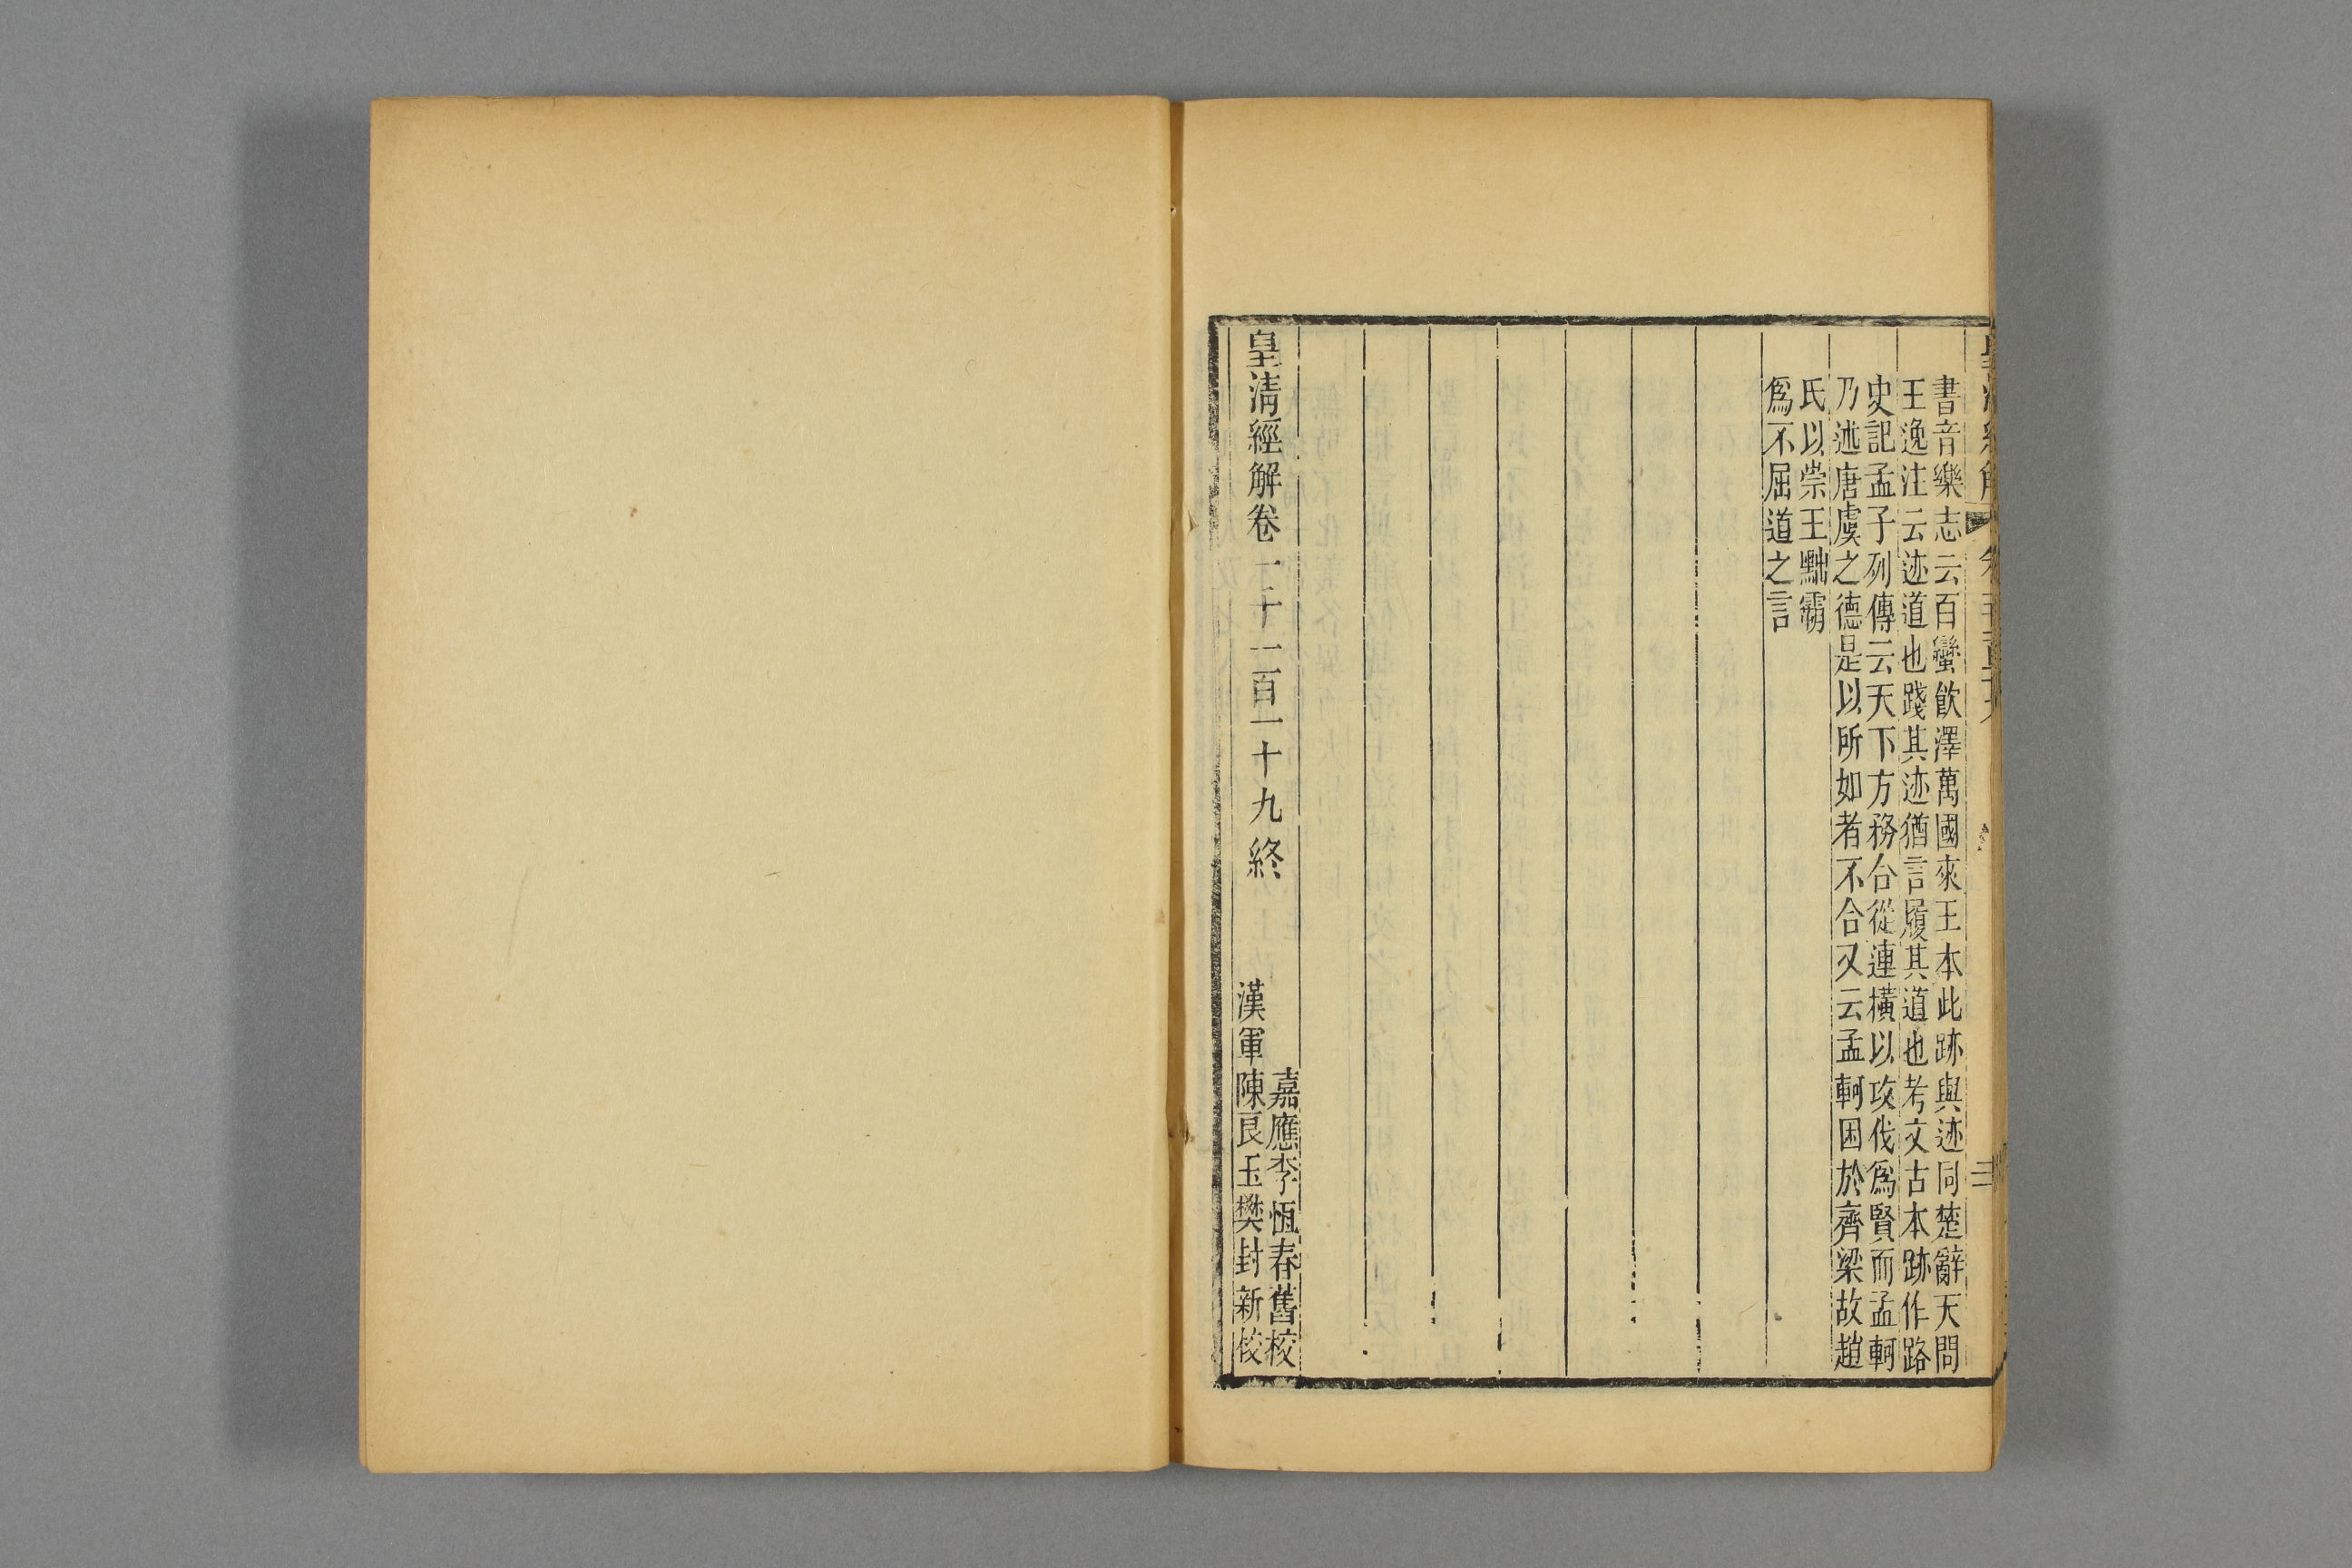 書音樂志云百蠻飲澤萬國來王本此跡與迹同楚辭天問
王逸注云迹道也踐其迹猶言履其道也考文古本跡作路
史記孟子列傳云天下方務合從連橫以攻伐爲賢而孟軻
乃述唐虞之德是以所如者不合又云孟軻困於齊梁故趙
氏以崇王黜霸
爲不屈道之言
皇清經解卷一千一百一十九終
嘉應李恆春舊校
漢軍陳良玉樊封新校